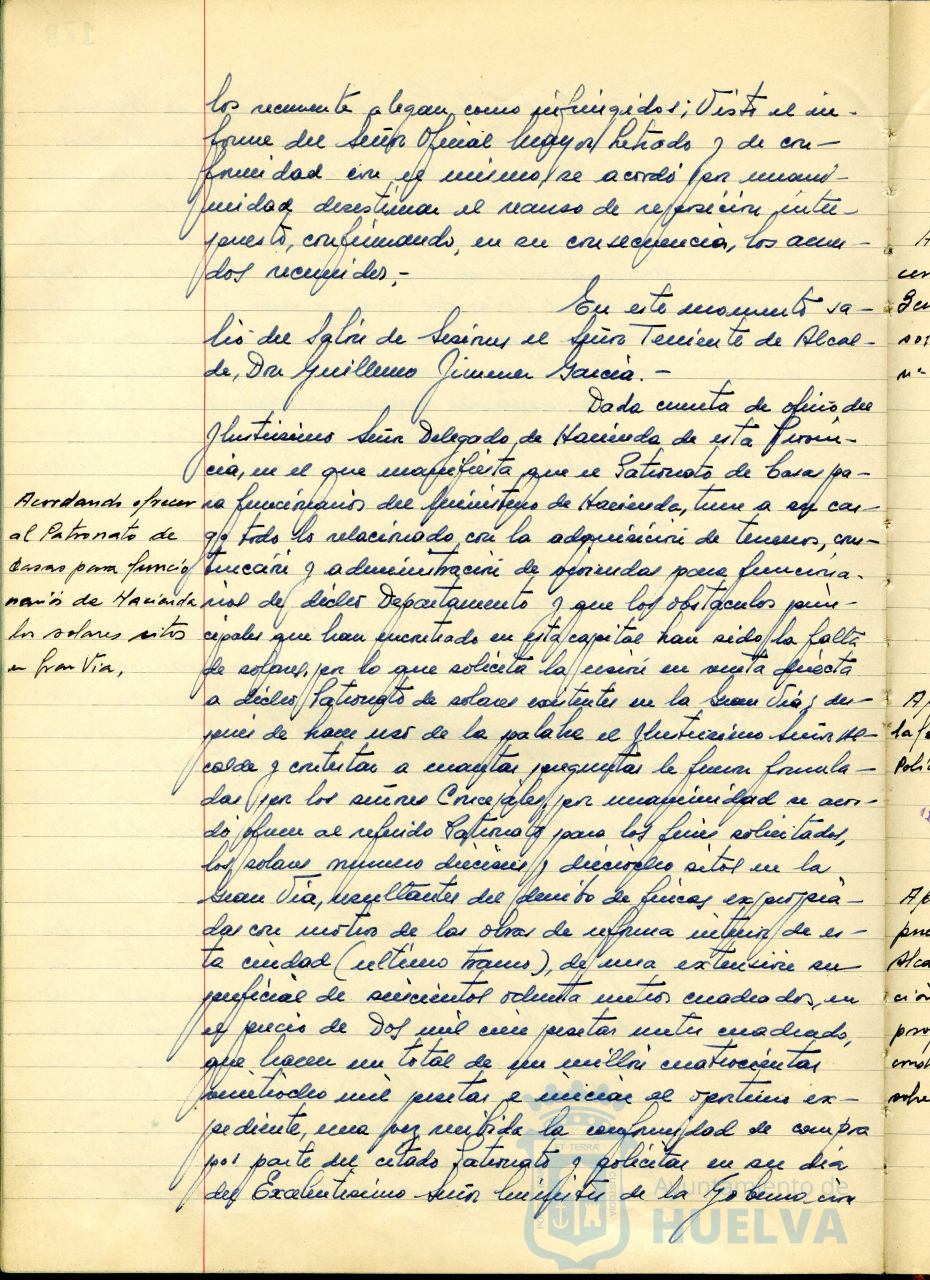 los recurrente alegan como infringidos; Visto el in-
forme del Señor Oficial Mayor Letrado y de con-
formidad con el mismo, se acordó por unani-
midad desestimar el recurso de reposición inter-
puesto, confirmando, en su consecuencia, los acuer-
dos recurridos.-
En este momento sa-
lió del Salón de Sesiones el Señor Teniente de Alcal-
de, Don Guillermo Jimenez García.-
Dada cuenta de oficio del
Ilustrisimo Señor Delegado de Hacienda de esta Provin-
cia, en el que manifiesta que el Patronato de Casas pa-
ra funcionarios del Ministerio de Hacienda, tiene a su car-
go todo lo relacionado con la adquisición de terrenos, cons-
trucción y administración de viviendas para funciona-
rios de dicho Departamento y que los obstáculos prin-
cipales que han encontrado en esta capital han sido la falta
de solares, por lo que solicita la cesión en venta directa
a dicho Patronato de solares existentes en la Gran Vía; des-
pués de hacer uso de la palabra el Ilustrisimo Señor Al-
calde y contestar a cuantas preguntas le fueron formula-
das por los señores Concejales, por unanimidad se acor-
dó ofrecer al referido Patronato para los fines solicitados,
los solares numero dieciseis y dieciocho sitos en la
Gran Vía, resultantes del derribo de fincas expropia-
das con motivo de las obras de reforma interior de es-
ta ciudad (ultimo tramo), de una extension su-
perficial de seiscientos ochenta metros cuadrados, en
el precio de Dos mil cien pesetas metro cuadrado,
que hacen un total de un millón cuatrocientas
veintiocho mil pesetas e iniciar el oportuno ex-
pediente, una vez recibida la conformidad de compra
por parte del citado Patronato y solicitar en su día
del Excelentisimo Señor Ministro de la Gobernación
Acordando ofrecer
al Patronato de
Casas para funcio
narios de Hacienda
los solares sitos
en Gran Vía.
ET TERRA
Ayuntamiento de
HUELVA